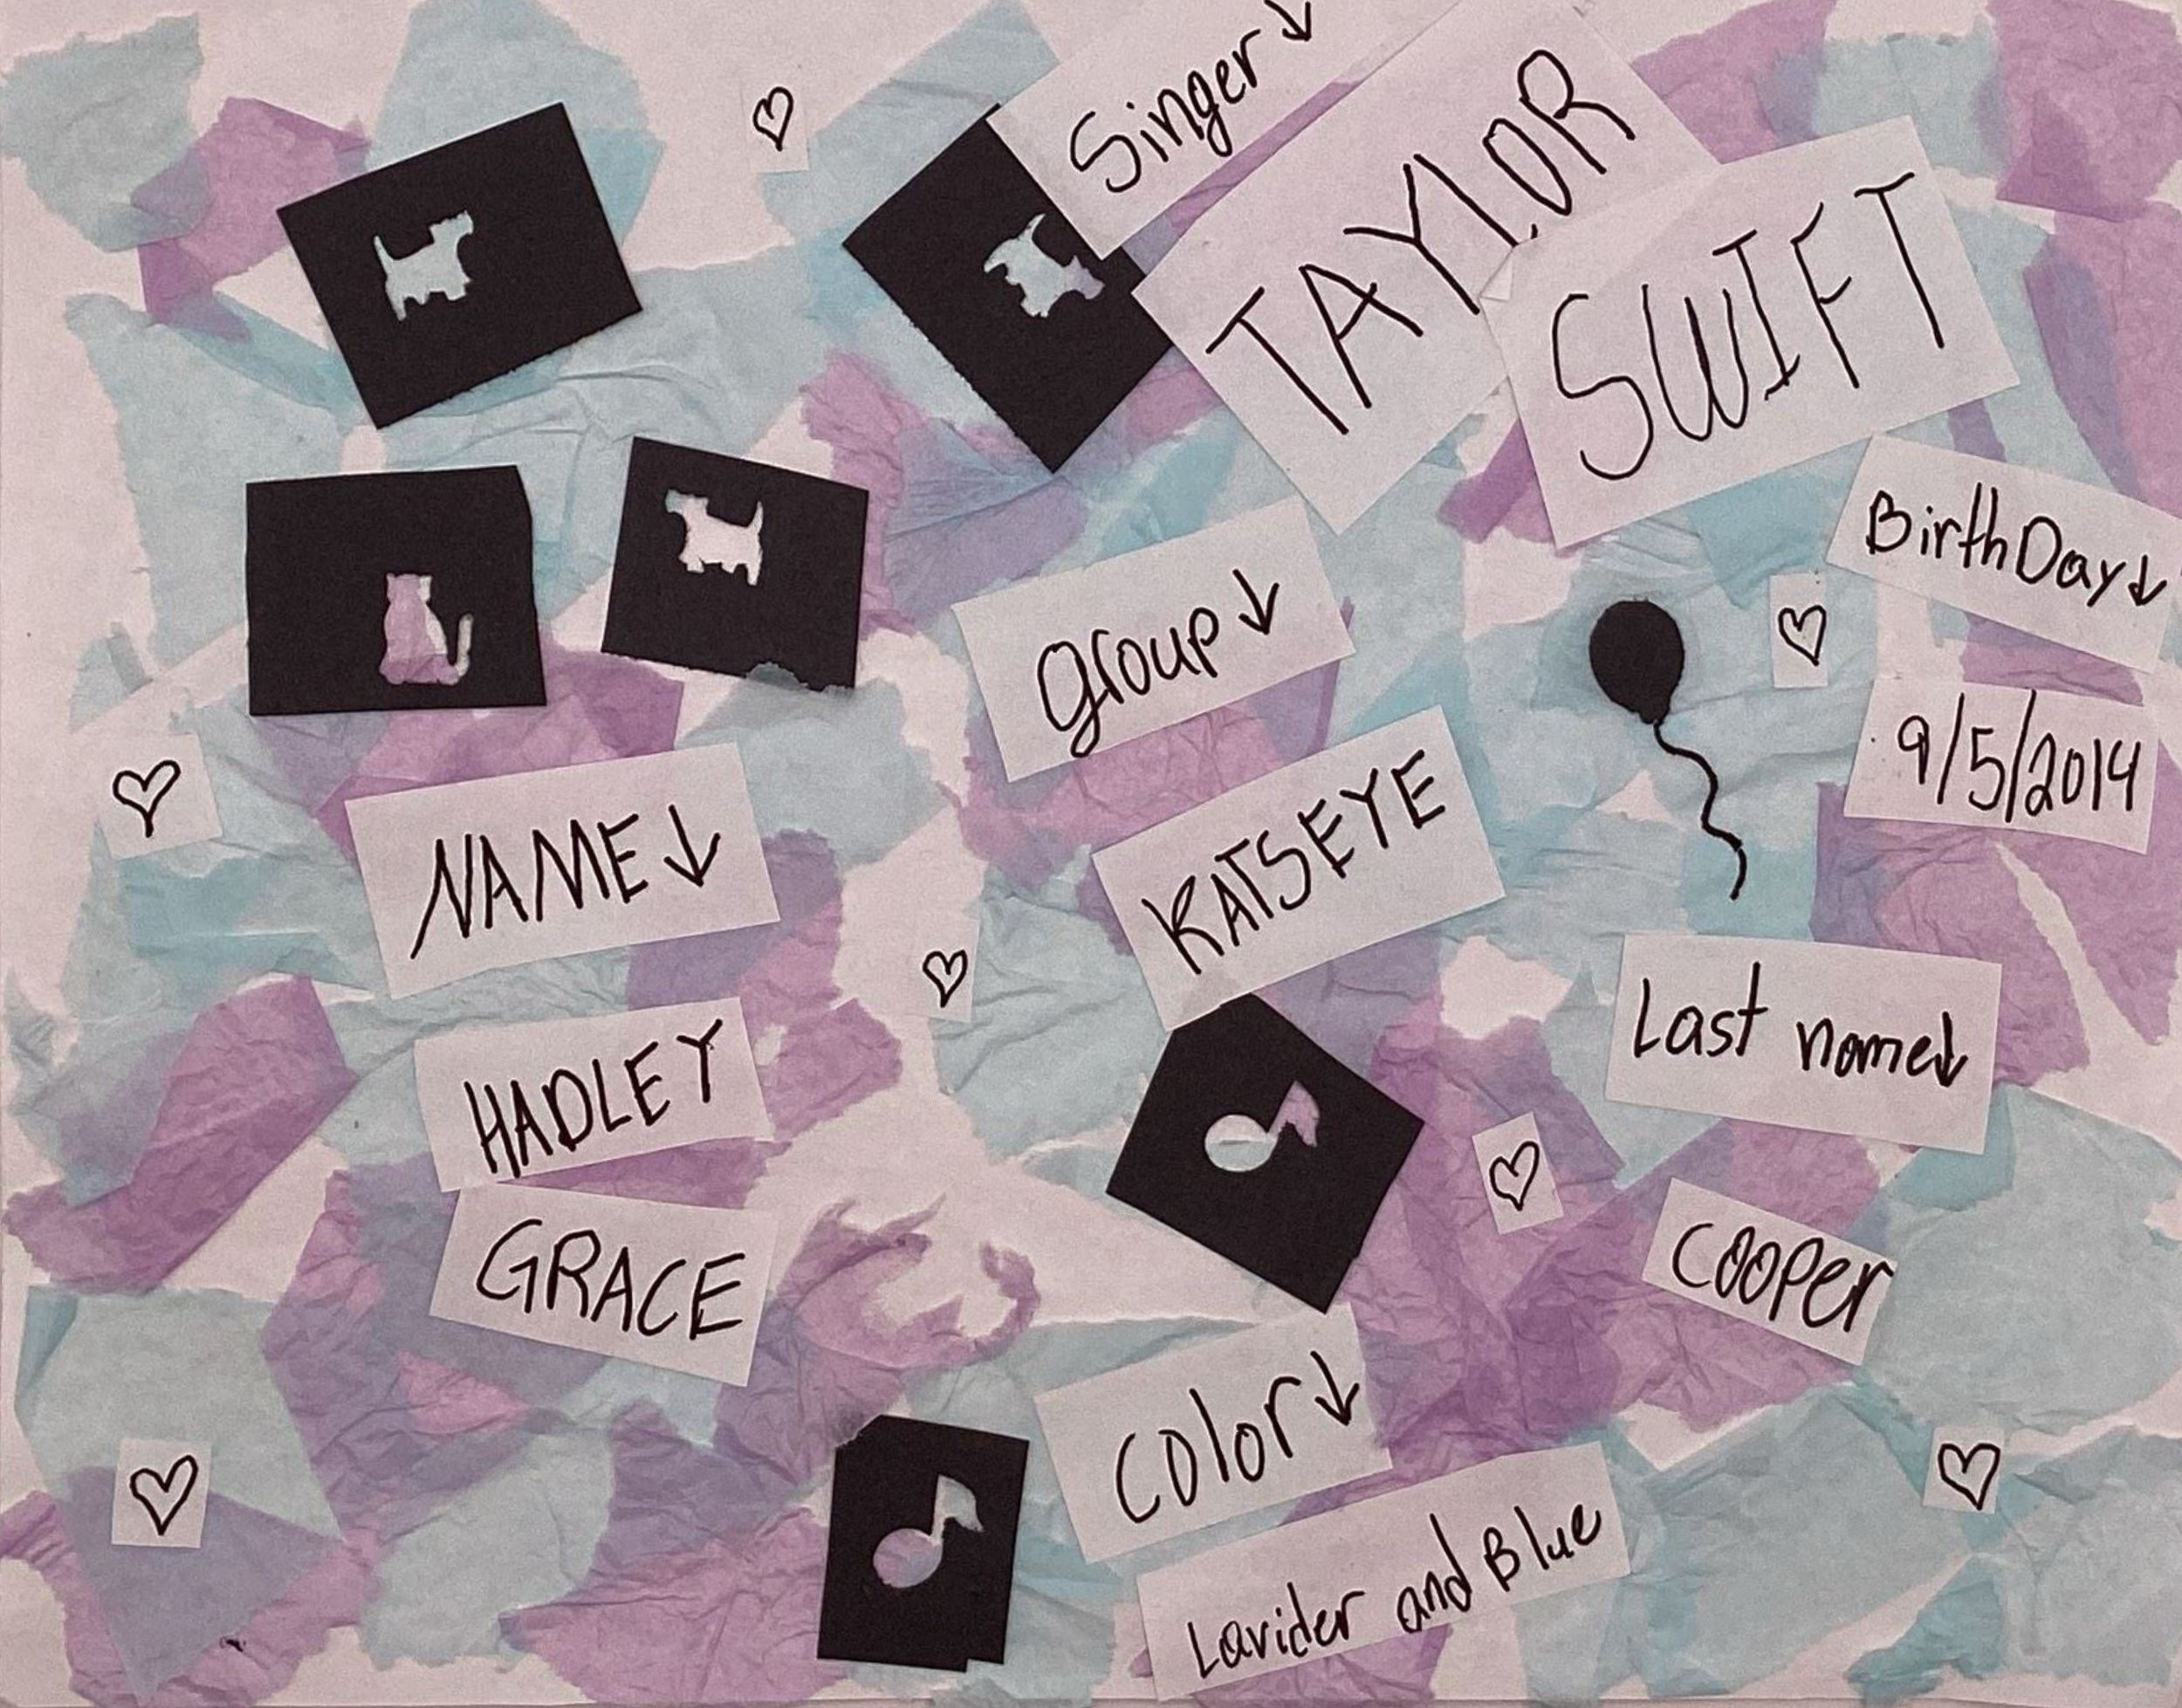 Singer↓
TAYLOR
SWIFT
BirthDay↓
9/5/2014
group↓
KATSEYE
NAME↓
HADLEY
GRACE
Last name↓
cooper
color↓
Lavider and Blue